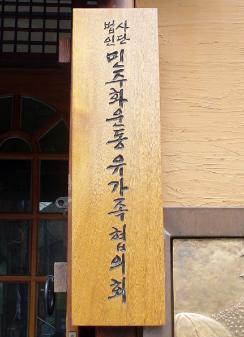 사단
법인
민주화운동유가족협의회